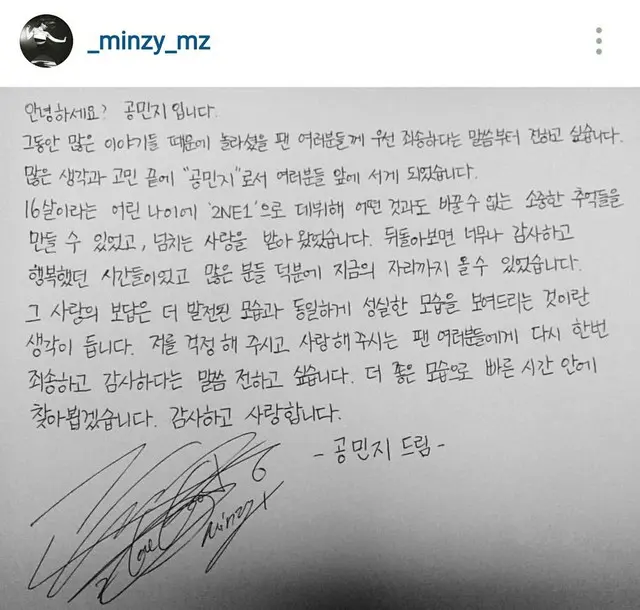 _minzy_mz
안녕하세요? 공민지 입니다.
그동안 많은 이야기들 때문에 놀라셨을 팬 여러분들께 우선 죄송하다는 말씀부터 전하고 싶습니다.
많은 생각과 고민 끝에 "공민지"로서 여러분들 앞에 서게 되었습니다.
16살이라는 어린 나이에 '2NE1'으로 데뷔해 어떤 것과도 바꿀 수 없는 소중한 추억들을
만들 수 있었고, 넘치는 사랑을 받아 왔었습니다. 뒤돌아보면 너무나 감사하고
행복했던 시간들이었고 많은 분들 덕분에 지금의 자리까지 올 수 있었습니다.
그 사랑의 보답은 더 발전된 모습과 동일하게 성실한 모습을 보여드리는 것이란
생각이 듭니다. 저를 걱정 해 주시고 사랑해 주시는 팬 여러분들에게 다시 한번
죄송하고 감사하다는 말씀 전하고 싶습니다. 더 좋은 모습으로 빠른 시간 안에
찾아뵙겠습니다. 감사하고 사랑합니다.
- 공민지 드림 -
minzy